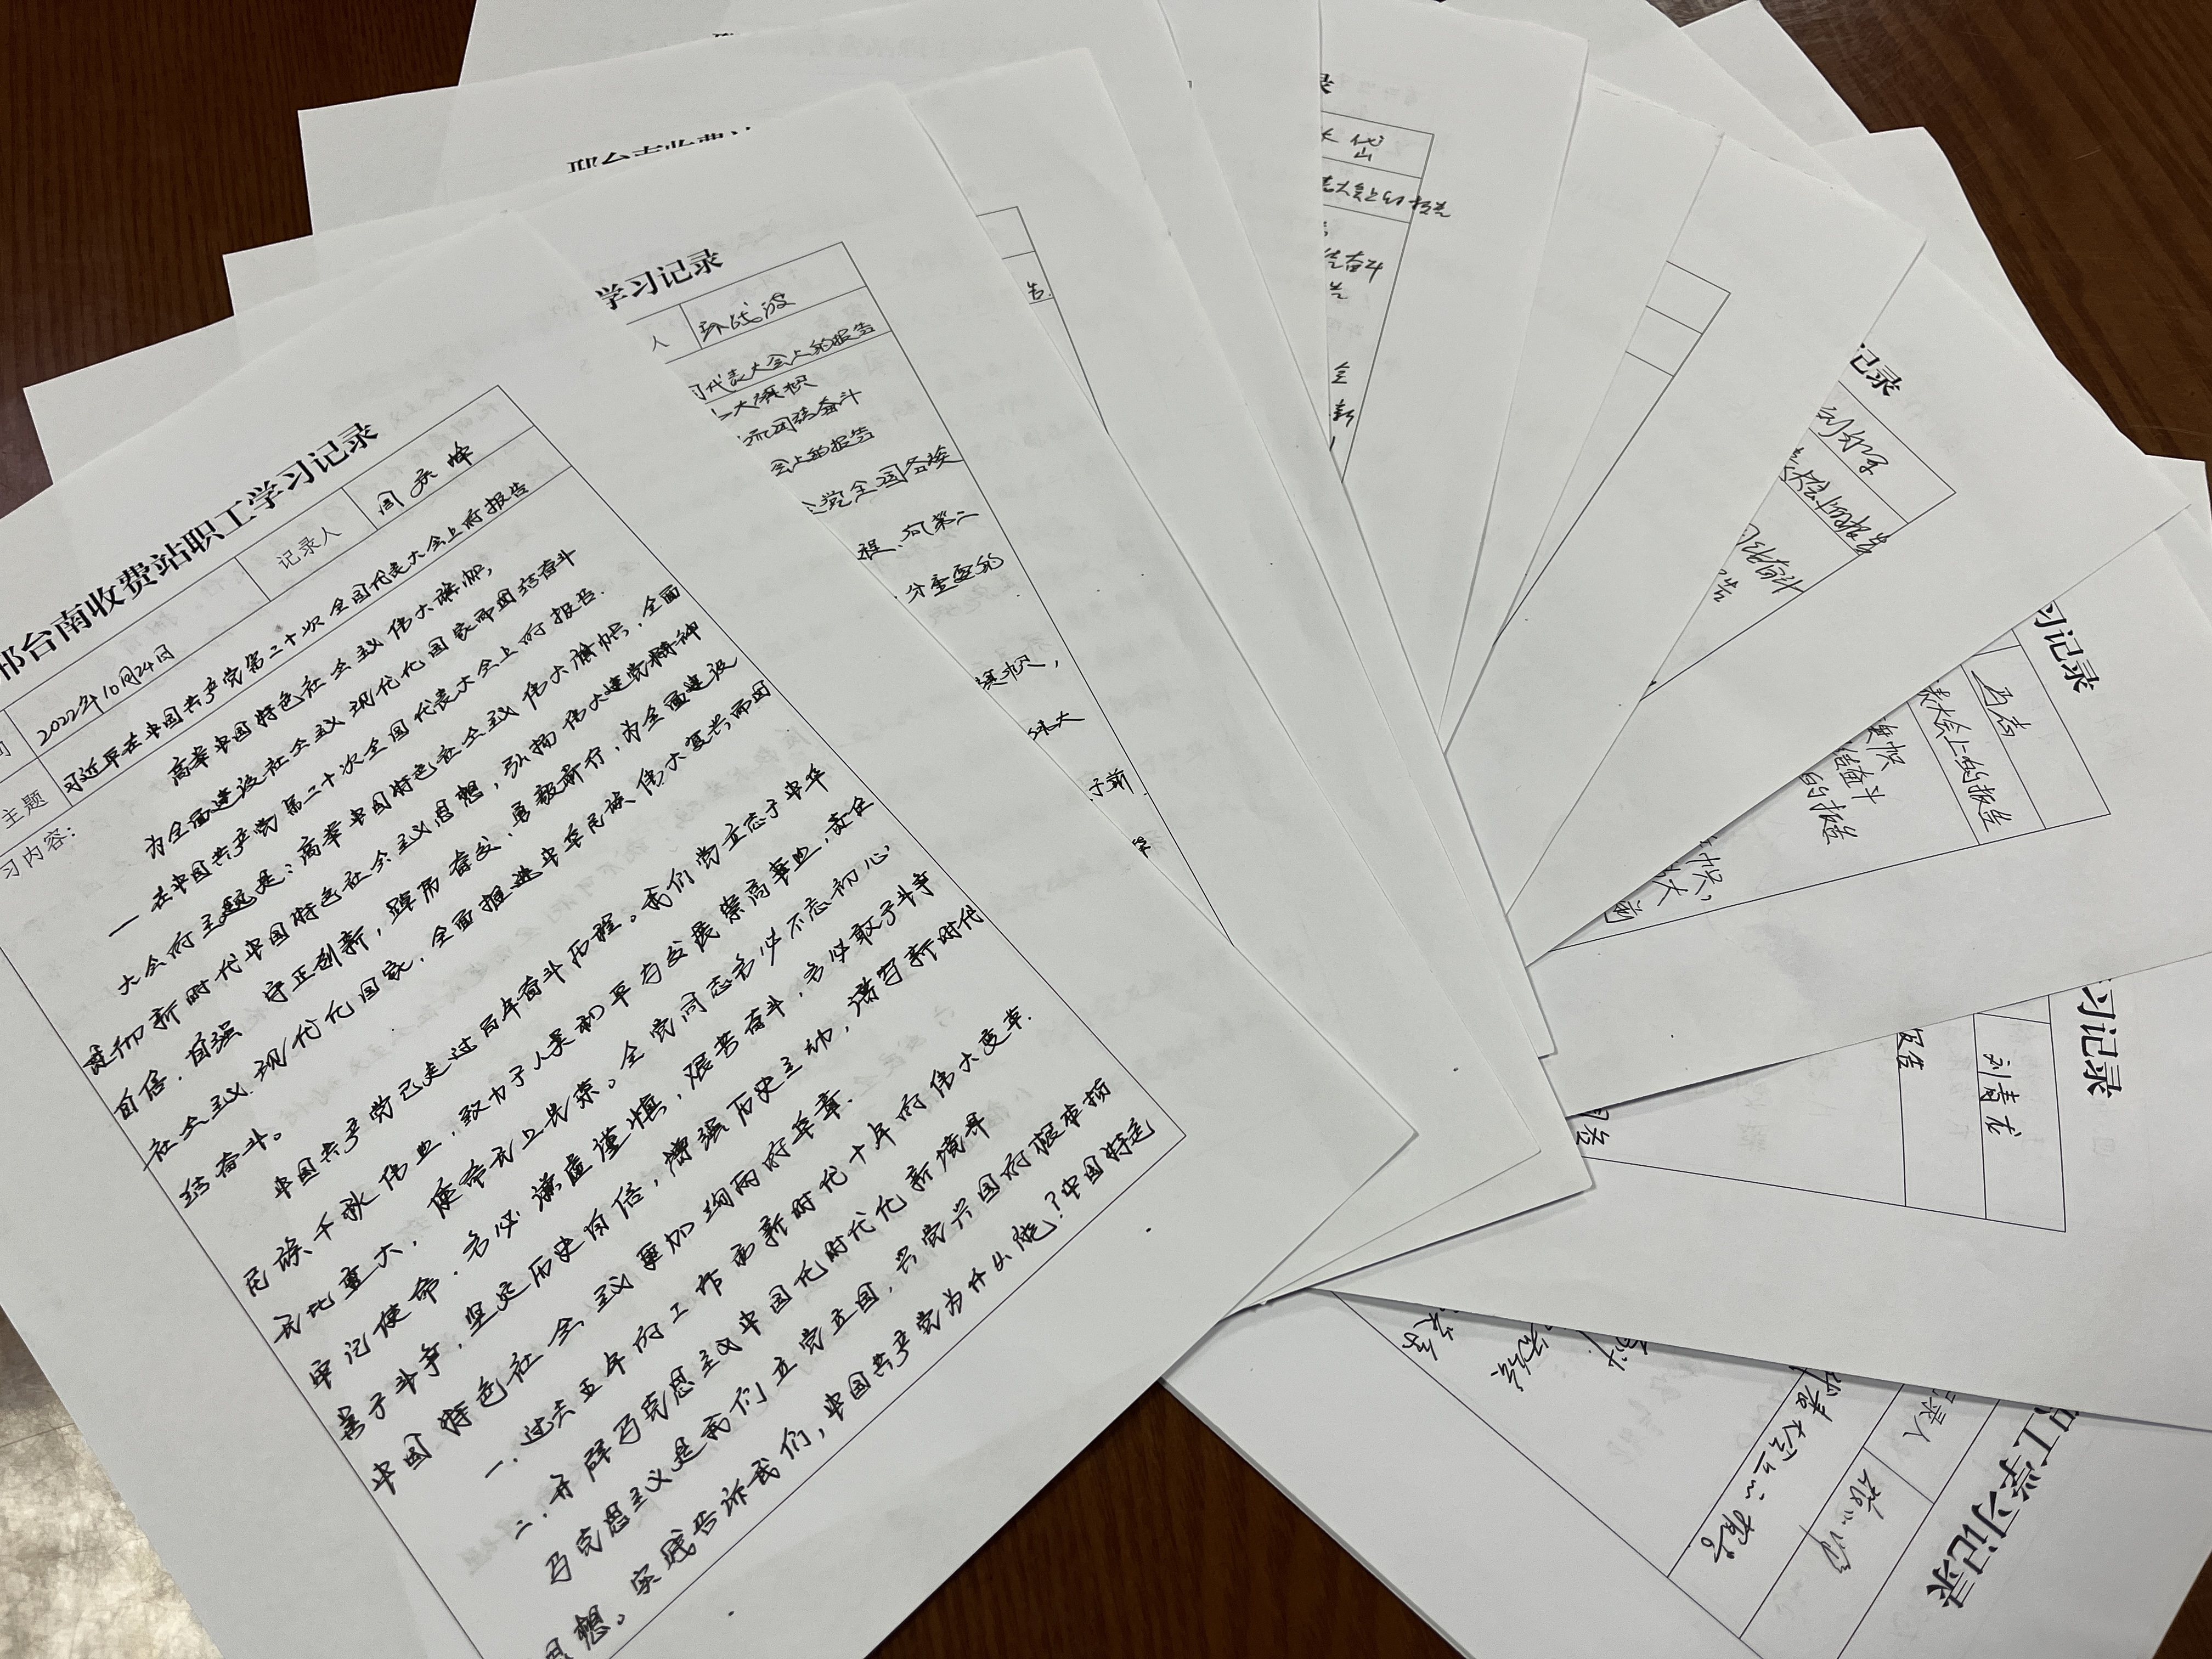 邢台南收费站职工学习记录
2022年10月24日
记录人
闫庆峰
主题
习近平在中国共产党第二十次全国代表大会上的报告
习内容:
高举中国特色社会主义伟大旗帜,
为全面建设社会主义现代化国家而团结奋斗
一在中国共产党第二十次全国代表大会上的报告.
大会的主题是:高举中国特色社会主义伟大旗帜,全面
贯彻新时代中国特色社会主义思想,弘扬伟大建党精神
自信.自强 守正创新,踔厉奋发、勇毅前行,为全面建设
社会主义现代化国家.全面推进中华民族伟大复兴而团
结奋斗。
中国共产党已走过百年奋斗历程。我们党立志于中华
民族千秋伟业,致力于人类和平与发展崇高事业,责任
无比重大,使命无上光荣。全党同志务必不忘初心,
牢记使命.务必谦虚谨慎,艰苦奋斗,务必敢于斗争
善于斗争,坚定历史自信,增强历史主动,谱写新时代
中国特色社会主义更加绚丽的华章.
一.过去五年的工作和新时代十年的伟大变革.
二.开辟马克思主义中国化时代化新境界
马克思主义是我们立党立国,兴党兴国的根本指
思想。实践告诉我们,中国共产党为什么能?中国特色
学习记录
人
代表大会上的报告
大旗帜
团结奋斗
会上的报告
党全国各族
程、向第二
分重要的
旗帜,
伟大
于新
告.
录
岱
大会上的报告
结奋斗
告
全
新
记录
大会上的报告
团结奋斗
告
习记录
马志
表大会上的报告
旗帜
结奋斗
的报告
帜,
习记录
刘青龙
报告
职工学习记录
记录人